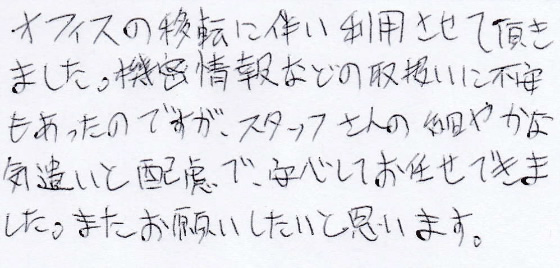 オフィスの移転に伴い利用させて頂き
ました。機密情報などの取扱いに不安
もあったのですが、スタッフさんの細やかな
気遣いと配慮で、安心してお任せできま
した。またお願いしたいと思います。